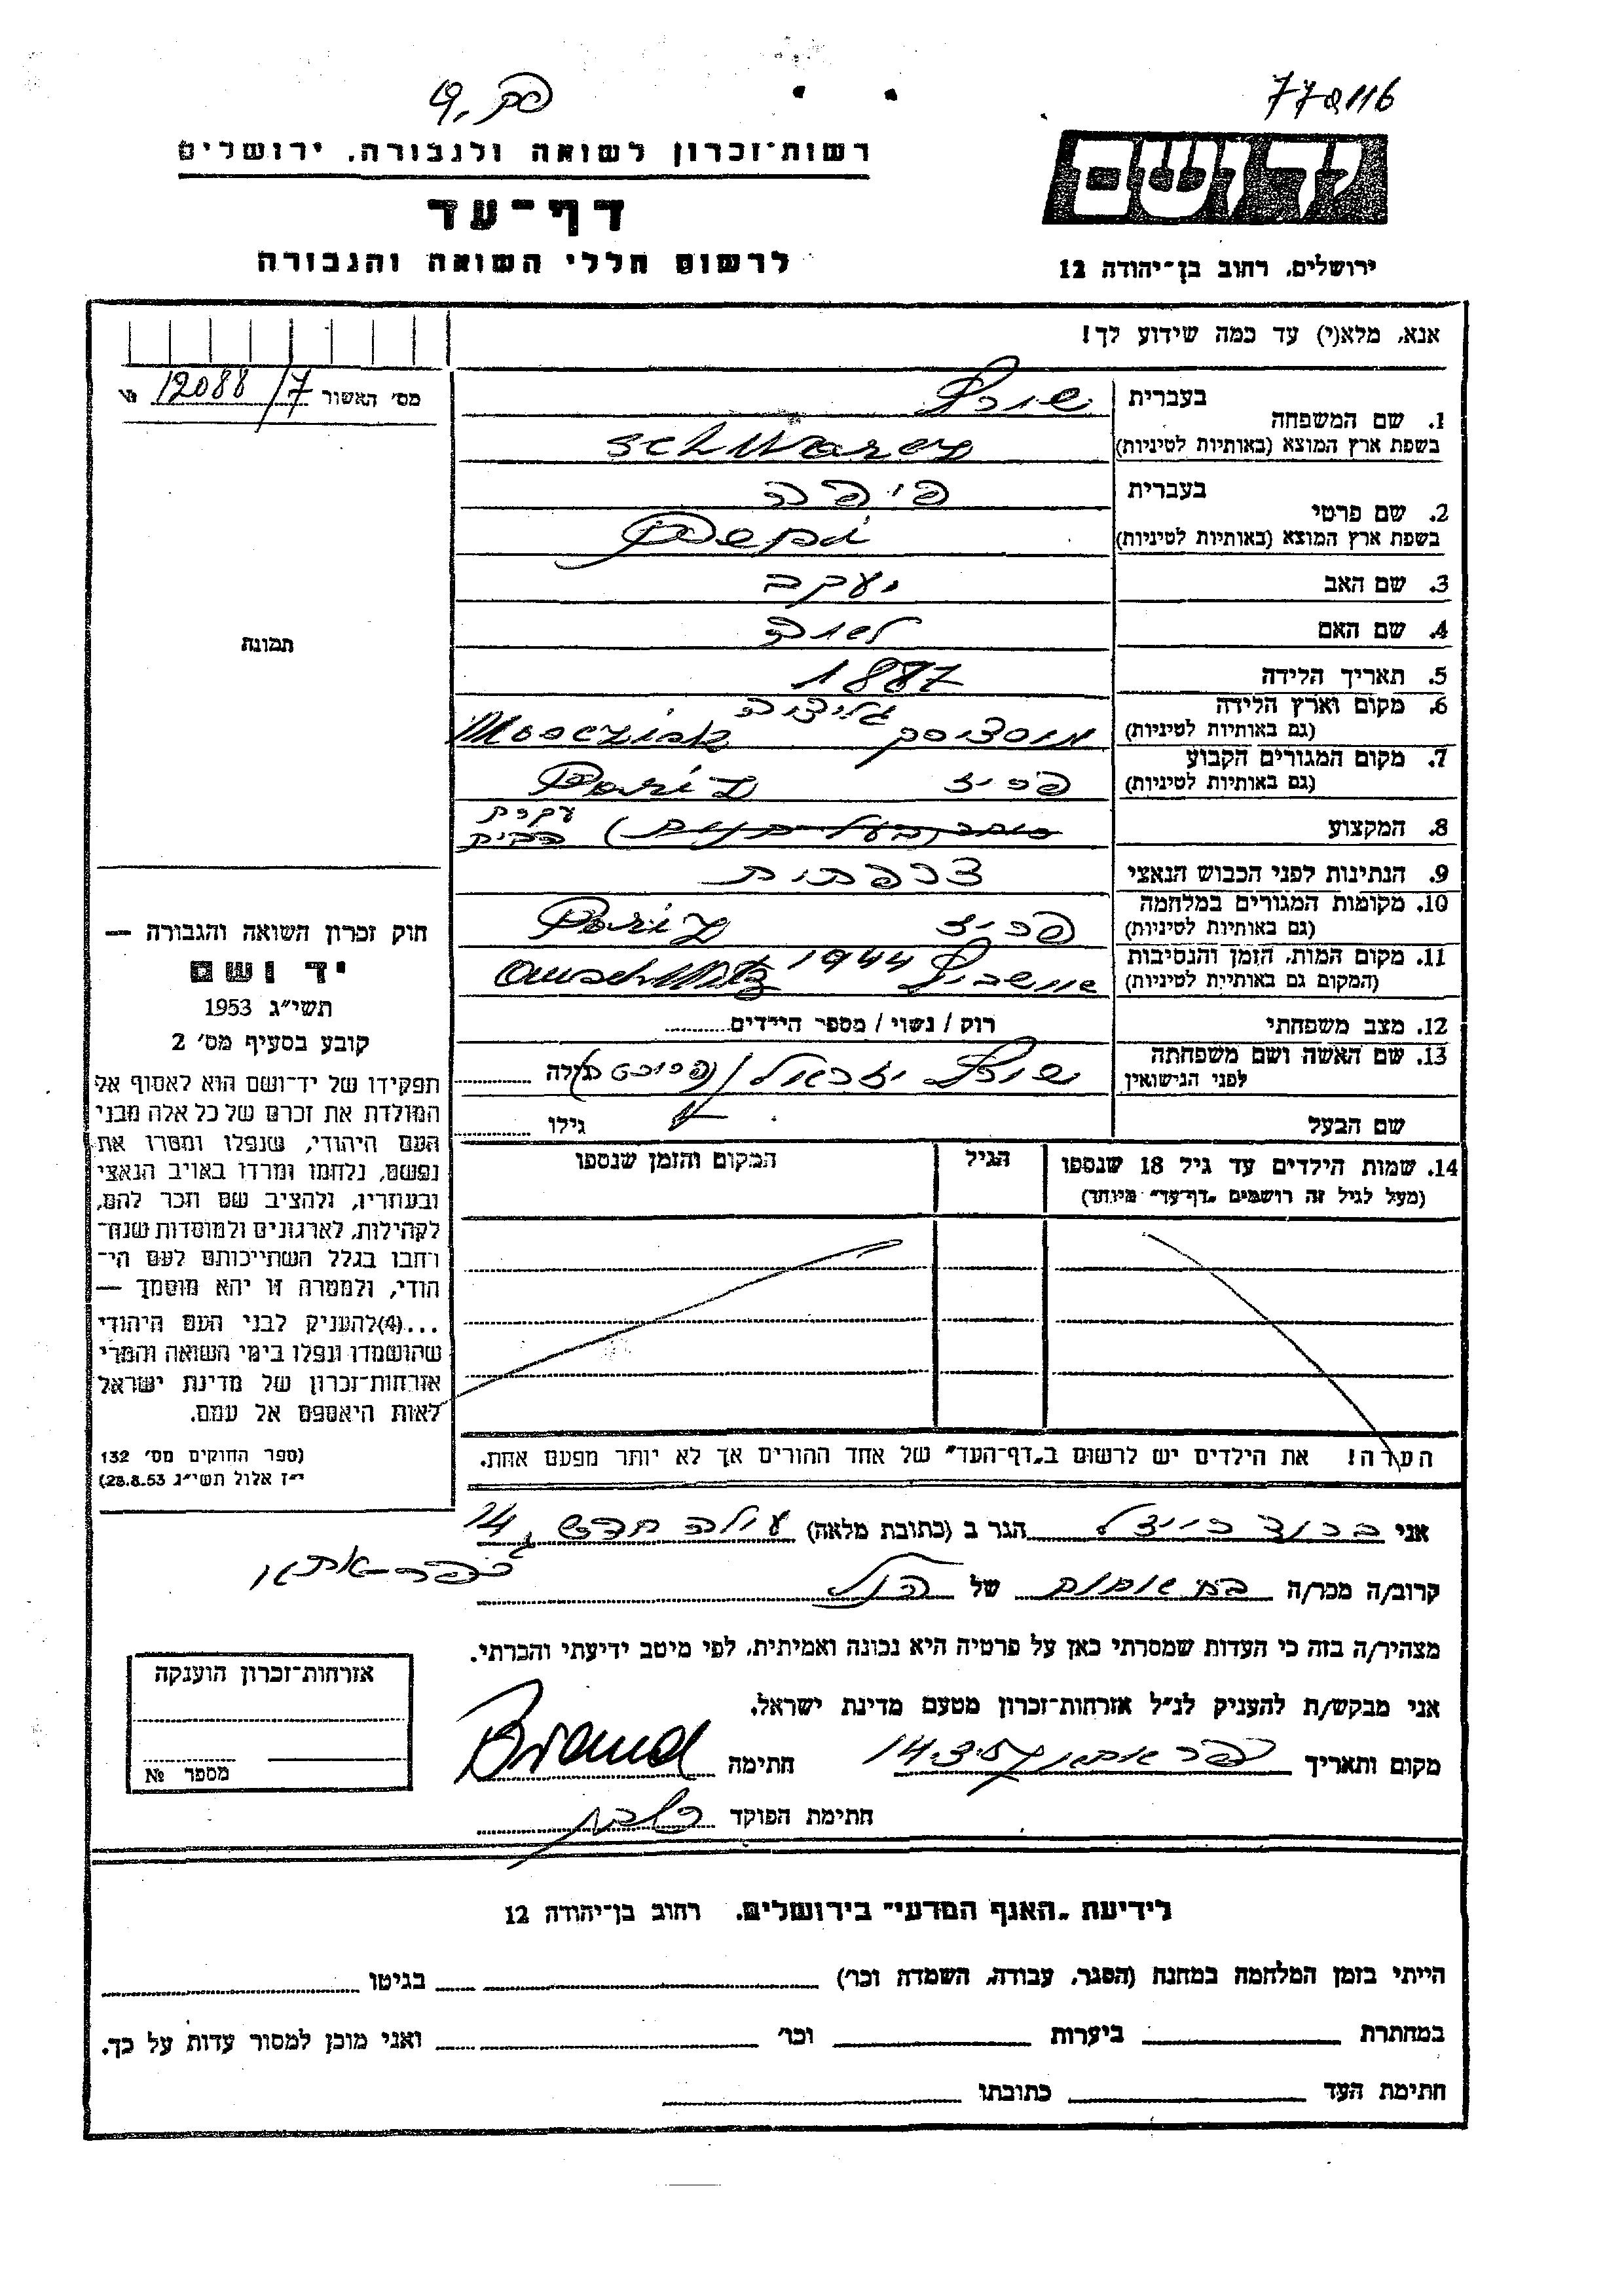 772116
פק. 9
רשות־זכרון לשואה ולגבורה, ירושלים
דף־עד
לרשום חללי השואה והגבורה
יד ושם
ירושלים, רחוב בן־יהודה 12
אנא, מלא(י) עד כמה שידוע לך!
מס׳ האשור 12088/7 №
תמונה
1. שם המשפחה בעברית שורץ
בשפת ארץ המוצא (באותיות לטיניות) Schwarcz
2. שם פרטי בעברית פיפה
בשפת ארץ המוצא (באותיות לטיניות) Pepi
3. שם האב יעקב
4. שם האם לאה
5. תאריך הלידה 1887
6. מקום וארץ הלידה גליציה
(גם באותיות לטיניות) מוסציסק Mosciska
7. מקום המגורים הקבוע
(גם באותיות לטיניות) פריז Pariz
8. המקצוע סוחר (בעל חנות) עקרת הבית
9. הנתינות לפני הכבוש הנאצי צרפתית
10. מקומות המגורים במלחמה
(גם באותיות לטיניות) פריז Pariz
11. מקום המות, הזמן והנסיבות
(המקום גם באותיות לטיניות) אושביץ 1944 Auschwitz
12. מצב משפחתי רוק / נשוי / מספר הילדים
13. שם האשה ושם משפחתה
לפני הנישואין שורץ יזראל גילה
שם הבעל גילו
14. שמות הילדים עד גיל 18 שנספו הגיל המקום והזמן שנספו
(מעל לגיל זה רושמים „דף־עד״ מיוחד)
הערה! את הילדים יש לרשום ב„דף־העד״ של אחד ההורים אך לא יותר מפעם אחת.
חוק זכרון השואה והגבורה —
יד ושם
תשי״ג 1953
קובע בסעיף מס׳ 2
תפקידו של יד־ושם הוא לאסוף אל
המולדת את זכרם של כל אלה מבני
העם היהודי, שנפלו ומסרו את
נפשם, נלחמו ומרדו באויב הנאצי
ובעוזריו, ולהציב שם וזכר להם,
לקהילות, לארגונים ולמוסדות שנח־
רחבו בגלל השתייכותם לעם הי־
הודי, ולמטרה זו יהא מוסמך —
...(4)להעניק לבני העם היהודי
שהושמדו ונפלו בימי השואה והמרי
אזרחות־זכרון של מדינת ישראל
לאות היאספם אל עמם.
(ספר החוקים מס׳ 132
י״ז אלול תשי״ג 28.8.53)
אני ברנד רייצל הגר ב (כתובת מלאה) עולה חדש 14,
כפר־אתא
קרוב/ה מכר/ה בת אחות של הנ״ל
מצהיר/ה בזה כי העדות שמסרתי כאן על פרטיה היא נכונה ואמיתית, לפי מיטב ידיעתי והכרתי.
אני מבקש/ת להעניק לנ״ל אזרחות־זכרון מטעם מדינת ישראל.
מקום ותאריך כפר אתא 14.3.57 חתימה Brand
חתימת הפוקד
אזרחות־זכרון הוענקה
מספר №
לידיעת „האגף המדעי״ בירושלים, רחוב בן־יהודה 12
הייתי בזמן המלחמה במחנה (הסגר, עבודה, השמדה וכו׳) בגיטו
במחתרת ביערות וכו׳ ואני מוכן למסור עדות על כך.
חתימת העד כתובתו